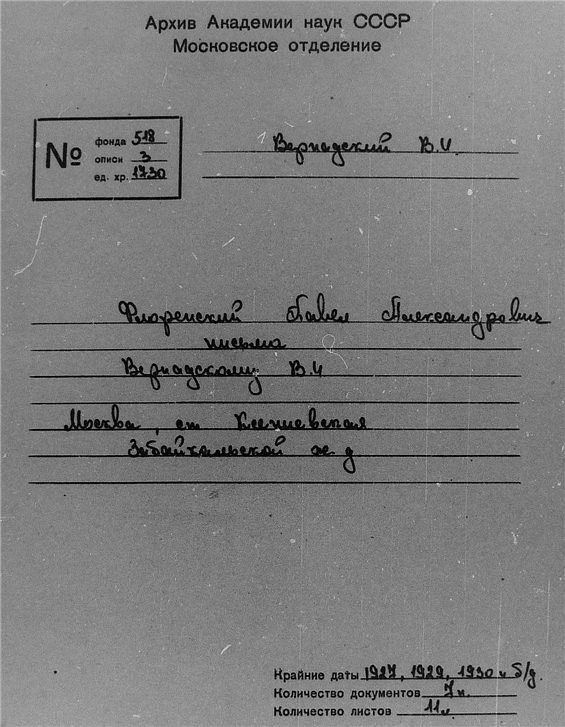 Архив Академии наук СССР
Московское отделение
№
фонда 518
описи 3
ед. хр. 1730
Вернадский В.И.
Флоренский Павел Александрович
письма
Вернадскому В.И
Москва, ст Ксениевская
Забайкальской ж. д
Крайние даты 1927, 1929, 1930 и б/д.
Количество документов 7 п.
Количество листов 11 л